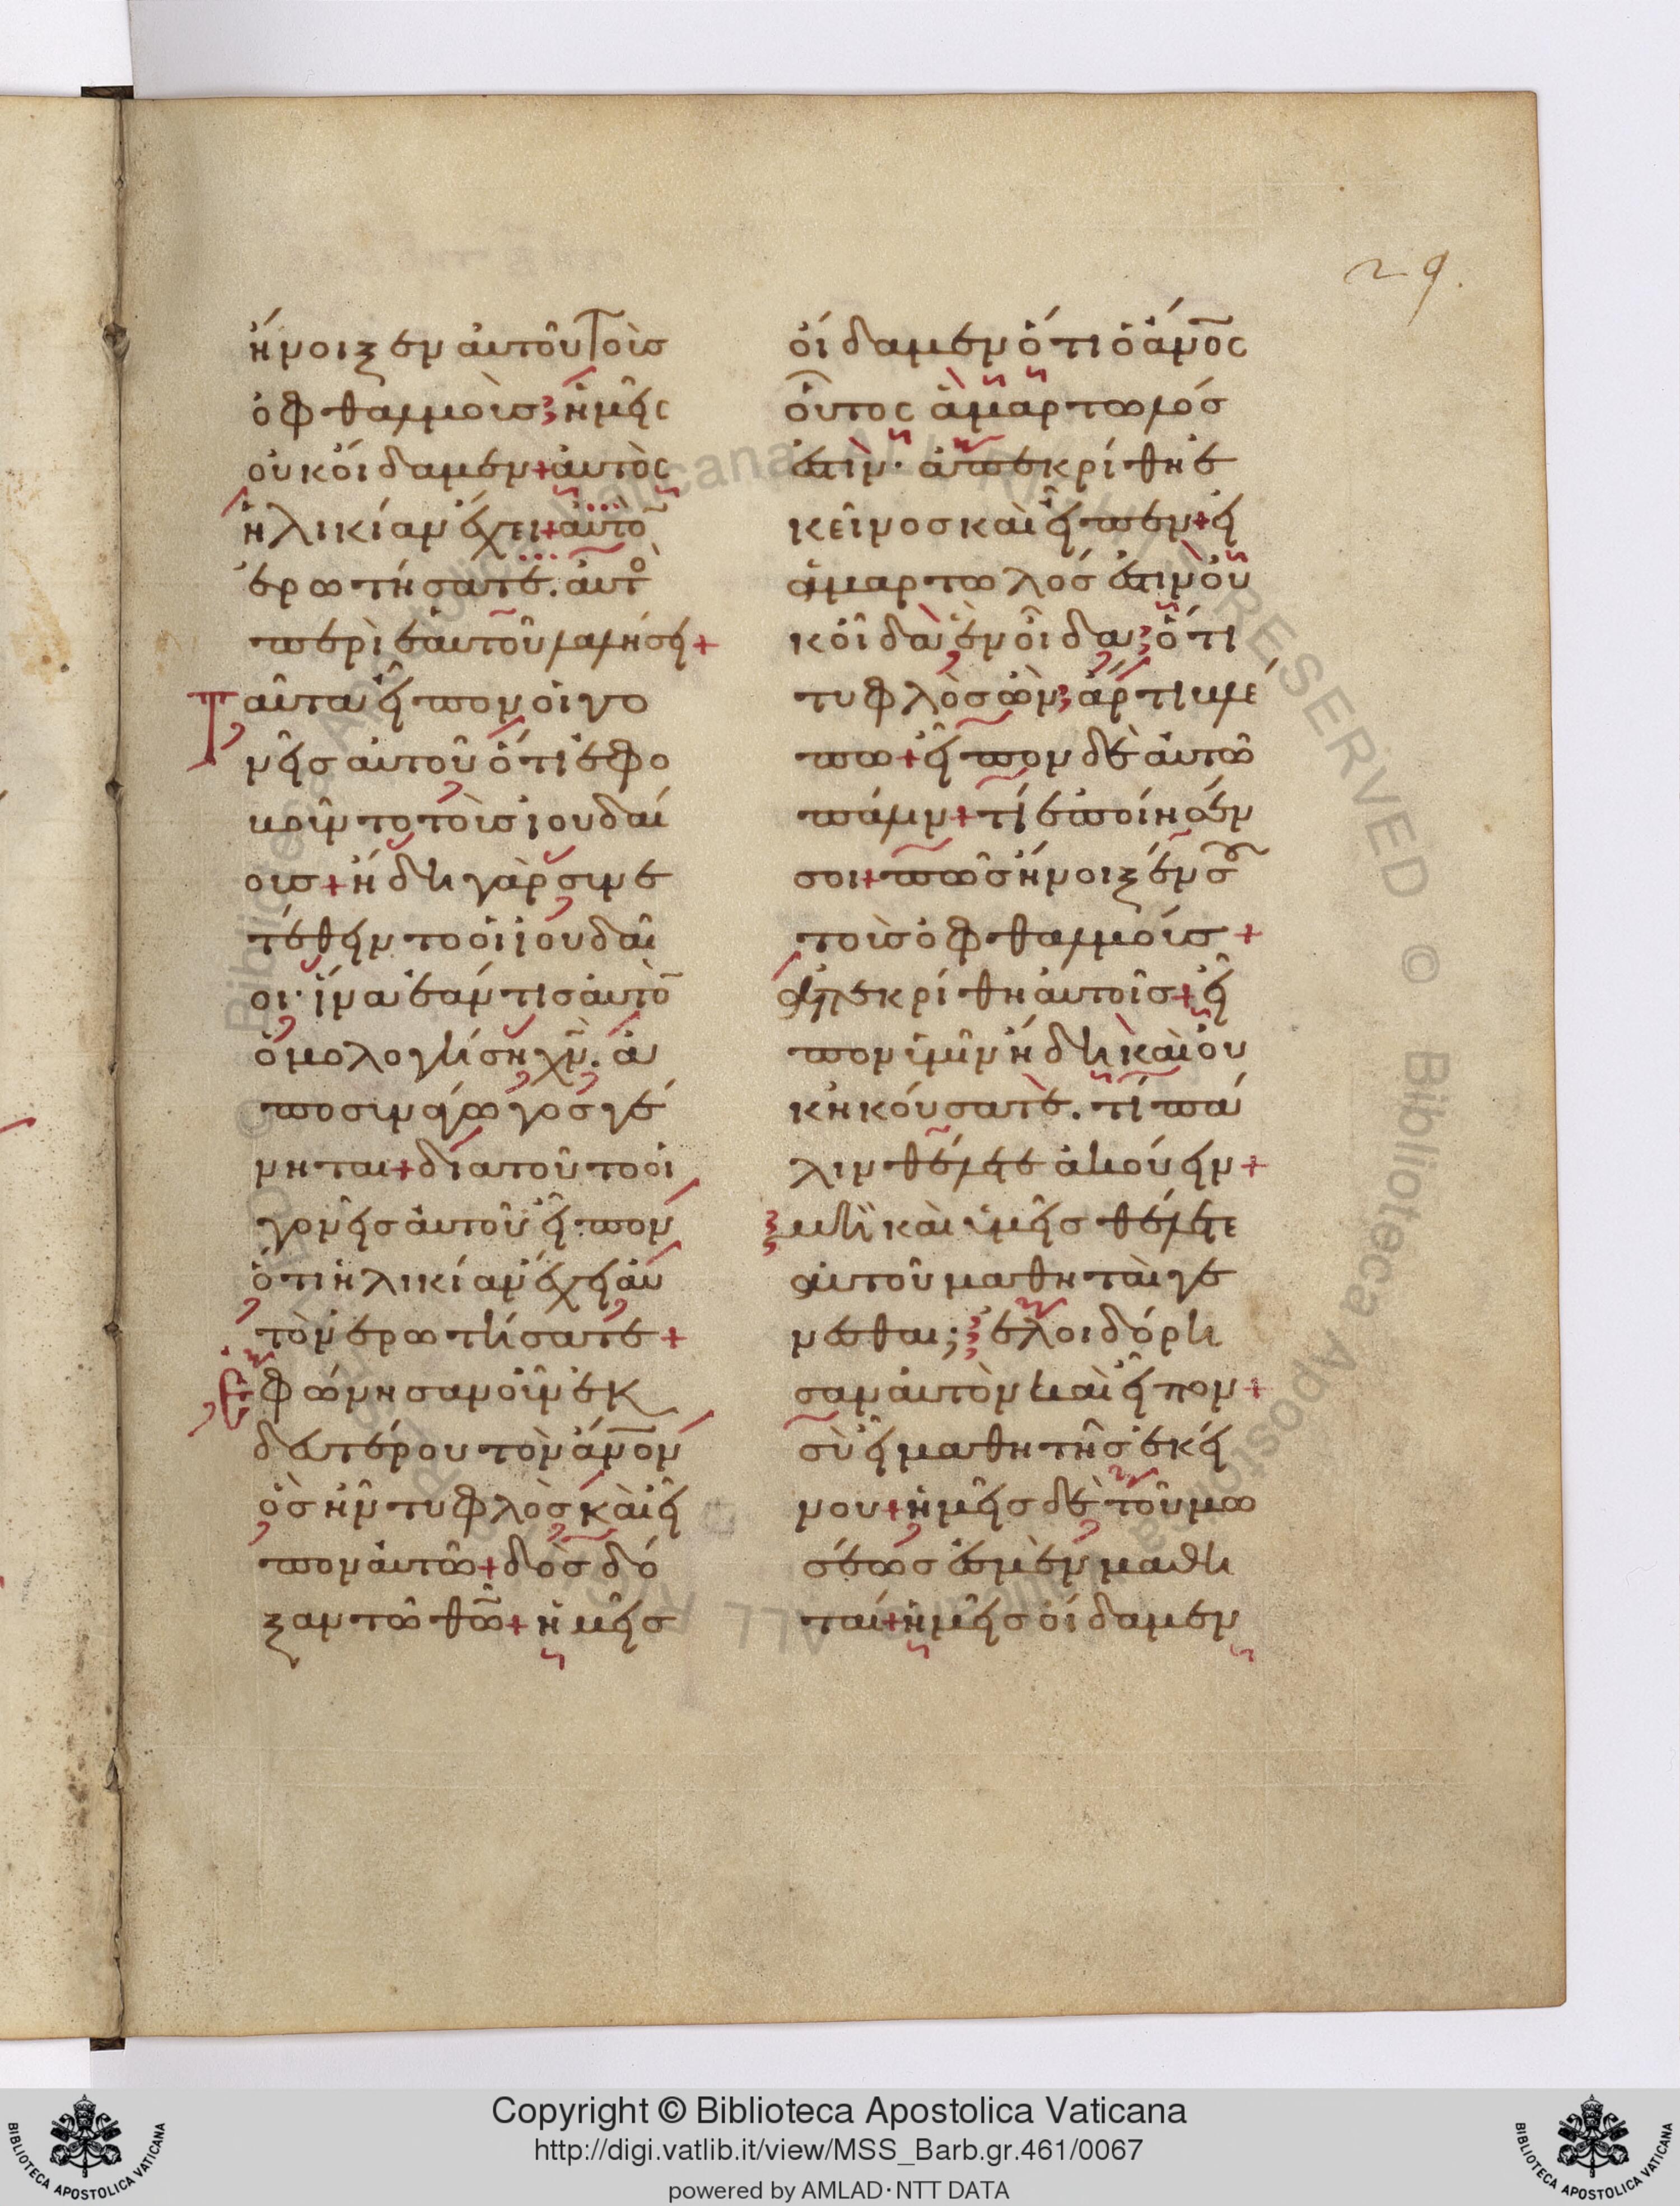 29.
ἤνοιξεν αὐτοῦ τοὺς
ὀφθαλμούς ἡμεῖς
οὐκ οἴδαμεν + αὐτὸς
ἡλικίαν ἔχει + αὐτὸ
ἐρωτήσατε. αὐτὸ
περὶ ἑαυτοῦ λαλήσει +
Ταῦτα εἶπον οἱ γο
νεῖς αὐτοῦ ὅτι ἐφο
βοῦντο τοὺς ἰουδαί
ους + ἤδη γὰρ συνε
τέθειντο οἱ ἰουδαῖ
οι· ἵνα ἐάν τις αὐτὸ
ὁμολογήση χν. ἀ
ποσυνάγωγος γέ
νηται + διατοῦτο οἱ
γονεῖς αὐτοῦ εἶπον
ὅτι ἡλικίαν ἔχει αὐ
τὸν ἐρωτήσατε +
Ἐφώνησαν οὖν ἐκ
δευτέρου τὸν ἄνον
ὃς ἦν τυφλὸς καὶ εἶ
πον αὐτῶ + δὸς δό
ξαν τῶ θῶ + ἡμεῖς
οἴδαμεν ὅτι ὁ ἄνος
οὗτος ἁμαρτωλός
ἐστιν· ἀπεκρίθη ἐ
κεῖνος καὶ εἶπεν + εἰ
ἁμαρτωλός ἐστιν οὐ
κ οἶδα ἓν οἶδα ὅτι
τυφλὸς ὢν ἄρτι βλέ
πω + εἶπον δὲ αὐτῶ
πάλιν + τί ἐποίησέν
σοι + πῶς ἤνοιξέν σου
τοὺς ὀφθαλμούς +
ἀπεκρίθη αὐτοῖς + εἶ
πον ὑμῖν ἤδη καὶ οὐ
κ ἠκούσατε. τί πά
λιν θέλετε ἀκούειν +
μὴ καὶ ὑμεῖς θέλετε
αὐτοῦ μαθηταὶ γε
νέσθαι; ἐλοιδόρη
σαν αὐτὸν καὶ εἶπον +
σὺ εἶ μαθητὴς ἐκεί
νου + ἡμεῖς δὲ τοῦ μω
σέως ἐσμὲν μαθη
ταί + ἡμεῖς οἴδαμεν
Copyright © Biblioteca Apostolica Vaticana
http://digi.vatlib.it/view/MSS_Barb.gr.461/0067
powered by AMLAD·NTT DATA
BIBLIOTECA APOSTOLICA VATICANA
BIBLIOTECA APOSTOLICA VATICANA